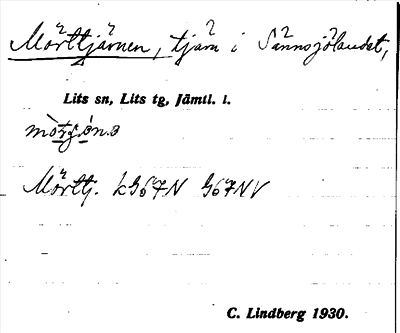 Mörttjärnen, tjärn i Sännsjölandet,
Lits sn, Lits tg, Jämtl. l.
Mörttj. LG67N G67NV
C. Lindberg 1930.